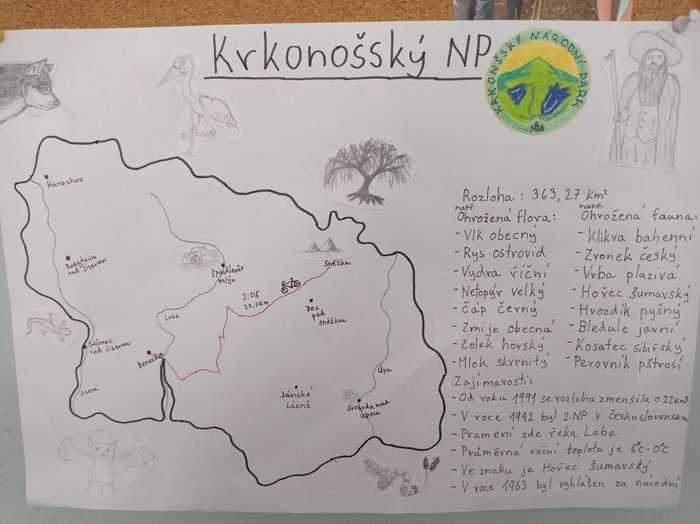 Krkonošský NP
KRKONŠSKÝ NÁRODNÍ PARK
Rozloha : 363,27 Km²
např: např:
Ohrožená flora: Ohrožená fauna:
- Vlk obecný - Klikva bahenní
- Rys ostrovid - Zvonek český
- Vydra říční - Vrba plazivá
- Netopýr velký - Hořec šumavský
- Čáp černý - Hvozdík pyšný
- Zmije obecná - Bledule jarní
- Čolek horský - Kosatec sibiřský
- Mlok skvrnitý - Perovník pštrosí
Zajímavosti:
- Od roku 1991 se rozloha zmenšila o 22 km²
- V roce 1992 byl 2.NP v československu
- Pramení zde řeka Labe
- Průměrná roční teplota je 6°c - 0°c
- Ve znaku je Hořec šumavský
- V roce 1963 byl vyhlášen za národní
Harrachov
Rokytnice
nad Jizerou
Jablonec
nad Jizerou
Jizera
Špindlerův
mlýn
Labe
Benecko
3:05
37,7km
Sněžka
Pec
pod
sněžkou
Jánské
Lázně
Svoboda nad
Úpou
Úpa